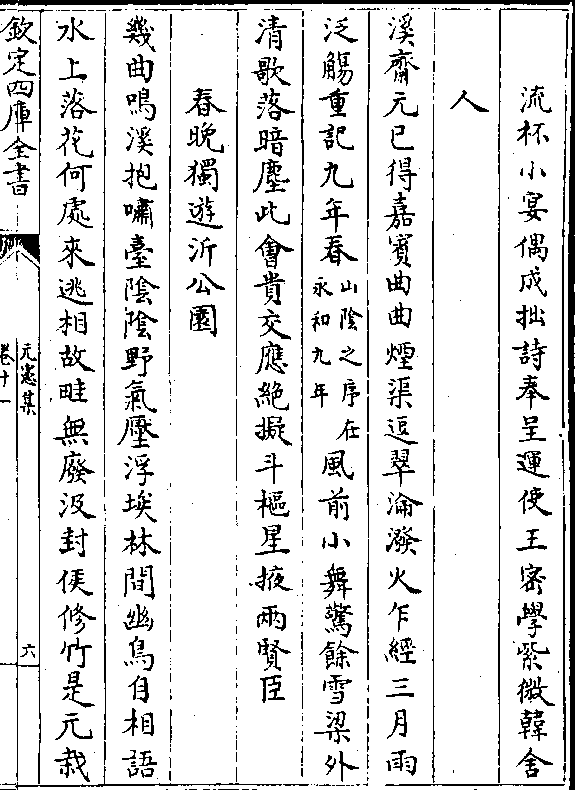 流杯小宴偶成拙詩奉呈運使王密學紫微韓舍
人
溪齋元巳得嘉賓曲曲煙渠逗翠淪潑火乍經三月雨
泛觴重記九年春山隂之序在永和九年風前小舞驚餘雪梁外
清歌落暗塵此會貴交應絶擬斗樞星掖兩賢臣
春晚獨遊沂公園
幾曲鳴溪抱嘯臺隂隂野氣壓浮埃林間幽鳥自相語
水上落花何處來逃相故畦無廢汲封侯修竹是元栽
欽定四庫全書
元憲集
卷十一
六